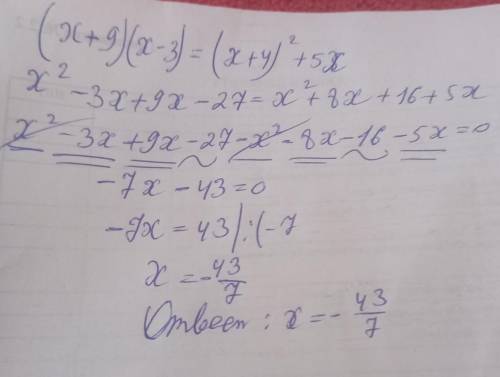 (x+9)(x-3)=(x+4)²+5x
x²-3x+9x-27=x²+8x+16+5x
x²-3x+9x-27-x²-8x-16-5x=0
-7x-43=0
-7x=43|:(-7
x=-43/7
Ответ: x=-43/7